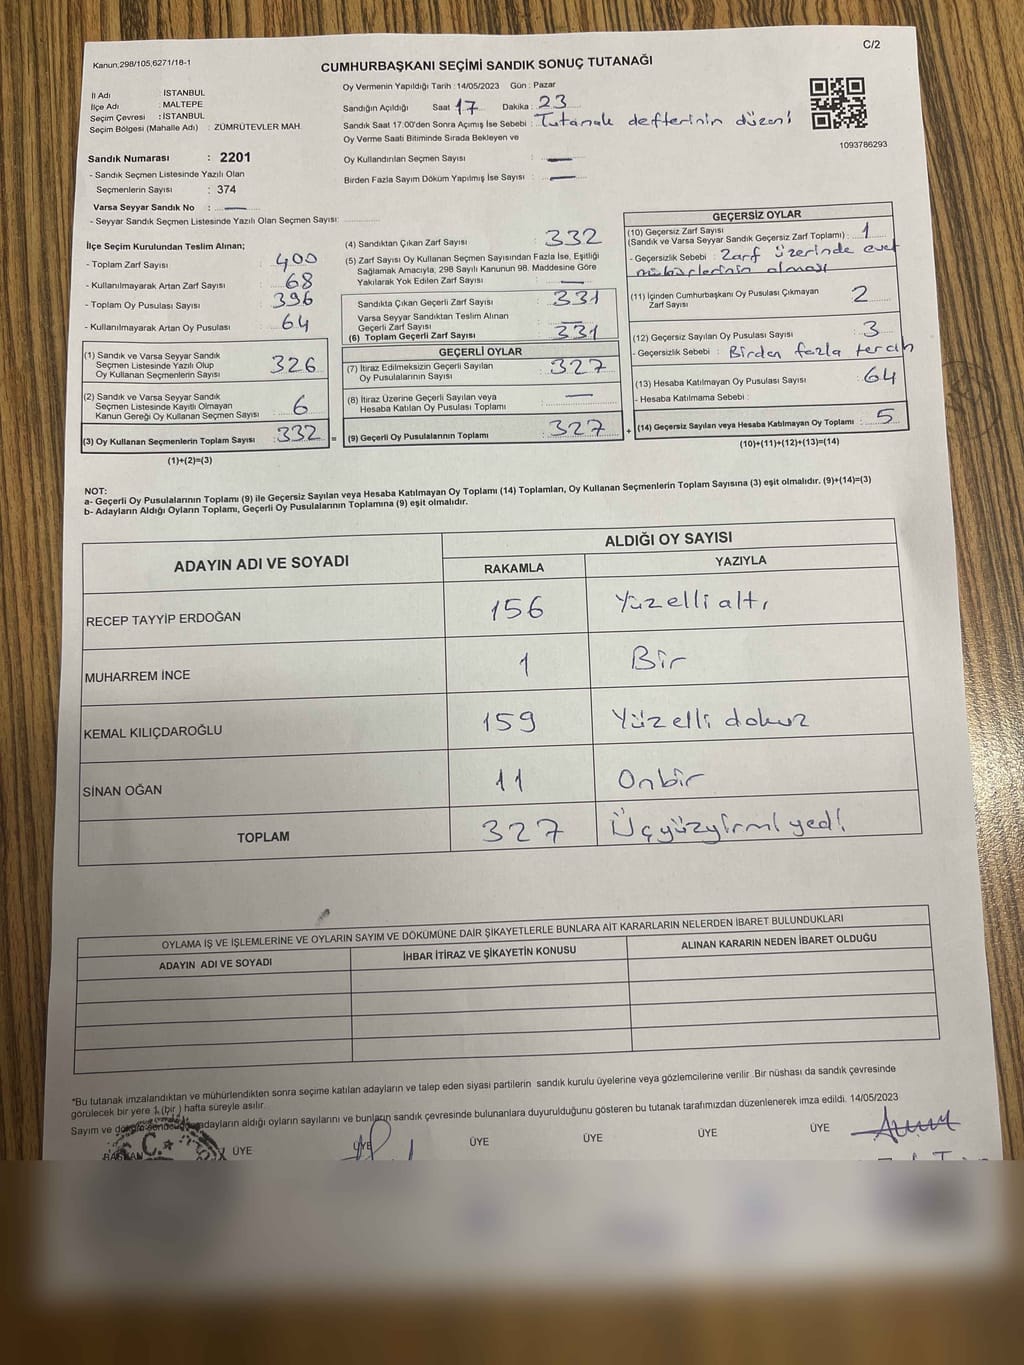 C/2
Kanun;298/105,6271/18-1
CUMHURBAŞKANI SEÇİMİ SANDIK SONUÇ TUTANAĞI
İl Adı : İSTANBUL
İlçe Adı : MALTEPE
Seçim Çevresi : İSTANBUL
Seçim Bölgesi (Mahalle Adı) : ZÜMRÜTEVLER MAH.
Oy Vermenin Yapıldığı Tarih : 14/05/2023 Gün : Pazar
Sandığın Açıldığı Saat : 17 Dakika : 23
Sandık Saat 17:00'den Sonra Açımış İse Sebebi : Tutanak defterinin düzeni
Oy Verme Saati Bitiminde Sırada Bekleyen ve
Oy Kullandırılan Seçmen Sayısı : —
Birden Fazla Sayım Döküm Yapılmış İse Sayısı : —
1093786293
Sandık Numarası : 2201
- Sandık Seçmen Listesinde Yazılı Olan
Seçmenlerin Sayısı : 374
Varsa Seyyar Sandık No : —
- Seyyar Sandık Seçmen Listesinde Yazılı Olan Seçmen Sayısı:
İlçe Seçim Kurulundan Teslim Alınan;
- Toplam Zarf Sayısı : 400
- Kullanılmayarak Artan Zarf Sayısı : 68
- Toplam Oy Pusulası Sayısı : 396
- Kullanılmayarak Artan Oy Pusulası : 64
(1) Sandık ve Varsa Seyyar Sandık
Seçmen Listesinde Yazılı Olup
Oy Kullanan Seçmenlerin Sayısı : 326
(2) Sandık ve Varsa Seyyar Sandık
Seçmen Listesinde Kayıtlı Olmayan
Kanun Gereği Oy Kullanan Seçmen Sayısı : 6
(3) Oy Kullanan Seçmenlerin Toplam Sayısı : 332 =
(1)+(2)=(3)
(4) Sandıktan Çıkan Zarf Sayısı : 332
(5) Zarf Sayısı Oy Kullanan Seçmen Sayısından Fazla İse, Eşitliği
Sağlamak Amacıyla, 298 Sayılı Kanunun 98. Maddesine Göre
Yakılarak Yok Edilen Zarf Sayısı : —
Sandıkta Çıkan Geçerli Zarf Sayısı : 331
Varsa Seyyar Sandıktan Teslim Alınan
Geçerli Zarf Sayısı : —
(6) Toplam Geçerli Zarf Sayısı : 331
GEÇERLİ OYLAR
(7) İtiraz Edilmeksizin Geçerli Sayılan
Oy Pusulalarının Sayısı : 327
(8) İtiraz Üzerine Geçerli Sayılan veya
Hesaba Katılan Oy Pusulası Toplamı : —
(9) Geçerli Oy Pusulalarının Toplamı : 327 +
GEÇERSİZ OYLAR
(10) Geçersiz Zarf Sayısı
(Sandık ve Varsa Seyyar Sandık Geçersiz Zarf Toplamı) : 1
- Geçersizlik Sebebi : Zarf üzerinde evet
mühürlerinin olması
(11) İçinden Cumhurbaşkanı Oy Pusulası Çıkmayan
Zarf Sayısı : 2
(12) Geçersiz Sayılan Oy Pusulası Sayısı : 3
- Geçersizlik Sebebi : Birden fazla tercih
(13) Hesaba Katılmayan Oy Pusulası Sayısı : 64
- Hesaba Katılmama Sebebi :
(14) Geçersiz Sayılan veya Hesaba Katılmayan Oy Toplamı : 5
(10)+(11)+(12)+(13)=(14)
NOT:
a- Geçerli Oy Pusulalarının Toplamı (9) ile Geçersiz Sayılan veya Hesaba Katılmayan Oy Toplamı (14) Toplamları, Oy Kullanan Seçmenlerin Toplam Sayısına (3) eşit olmalıdır. (9)+(14)=(3)
b- Adayların Aldığı Oyların Toplamı, Geçerli Oy Pusulalarının Toplamına (9) eşit olmalıdır.
ADAYIN ADI VE SOYADI
ALDIĞI OY SAYISI
RAKAMLA YAZIYLA
RECEP TAYYİP ERDOĞAN 156 Yüzelli altı
MUHARREM İNCE 1 Bir
KEMAL KILIÇDAROĞLU 159 Yüzelli dokuz
SİNAN OĞAN 11 Onbir
TOPLAM 327 Üçyüzyirmi yedi
OYLAMA İŞ VE İŞLEMLERİNE VE OYLARIN SAYIM VE DÖKÜMÜNE DAİR ŞİKAYETLERLE BUNLARA AİT KARARLARIN NELERDEN İBARET BULUNDUKLARI
ADAYIN ADI VE SOYADI İHBAR İTİRAZ VE ŞİKAYETİN KONUSU ALINAN KARARIN NEDEN İBARET OLDUĞU
*Bu tutanak imzalandıktan ve mühürlendikten sonra seçime katılan adayların ve talep eden siyasi partilerin sandık kurulu üyelerine veya gözlemcilerine verilir .Bir nüshası da sandık çevresinde
görülecek bir yere 1 (bir ) hafta süreyle asılır.
Sayım ve adayların aldığı oyların sayılarını ve bunların sandık çevresinde bulunanlara duyurulduğunu gösteren bu tutanak tarafımızdan düzenlenerek imza edildi. 14/05/2023
BAŞKAN ÜYE ÜYE ÜYE ÜYE ÜYE ÜYE